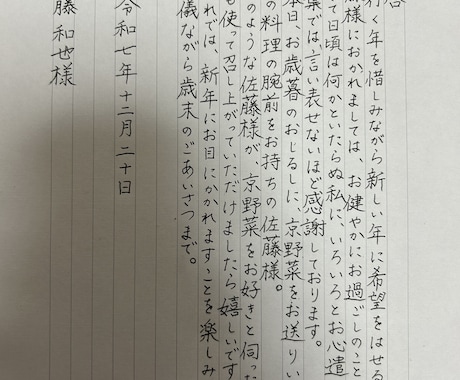 行く年を惜しみながら新しい年に希望をはせる
様におかれましては、お健やかにお過ごしのこと
て日頃は何かといたらぬ私に、いろいろとお心遣
葉では言い表せないほど感謝しております。
本日、お歳暮のおしるしに、京野菜をお送りい
の料理の腕前をお持ちの佐藤様。
のような佐藤様が、京野菜をお好きと伺った
も使って召し上がっていただけましたら嬉しいです
れでは、新年にお目にかかれますことを楽しみ
儀ながら歳末のごあいさつまで。
令和七年十二月二十日
藤和也様